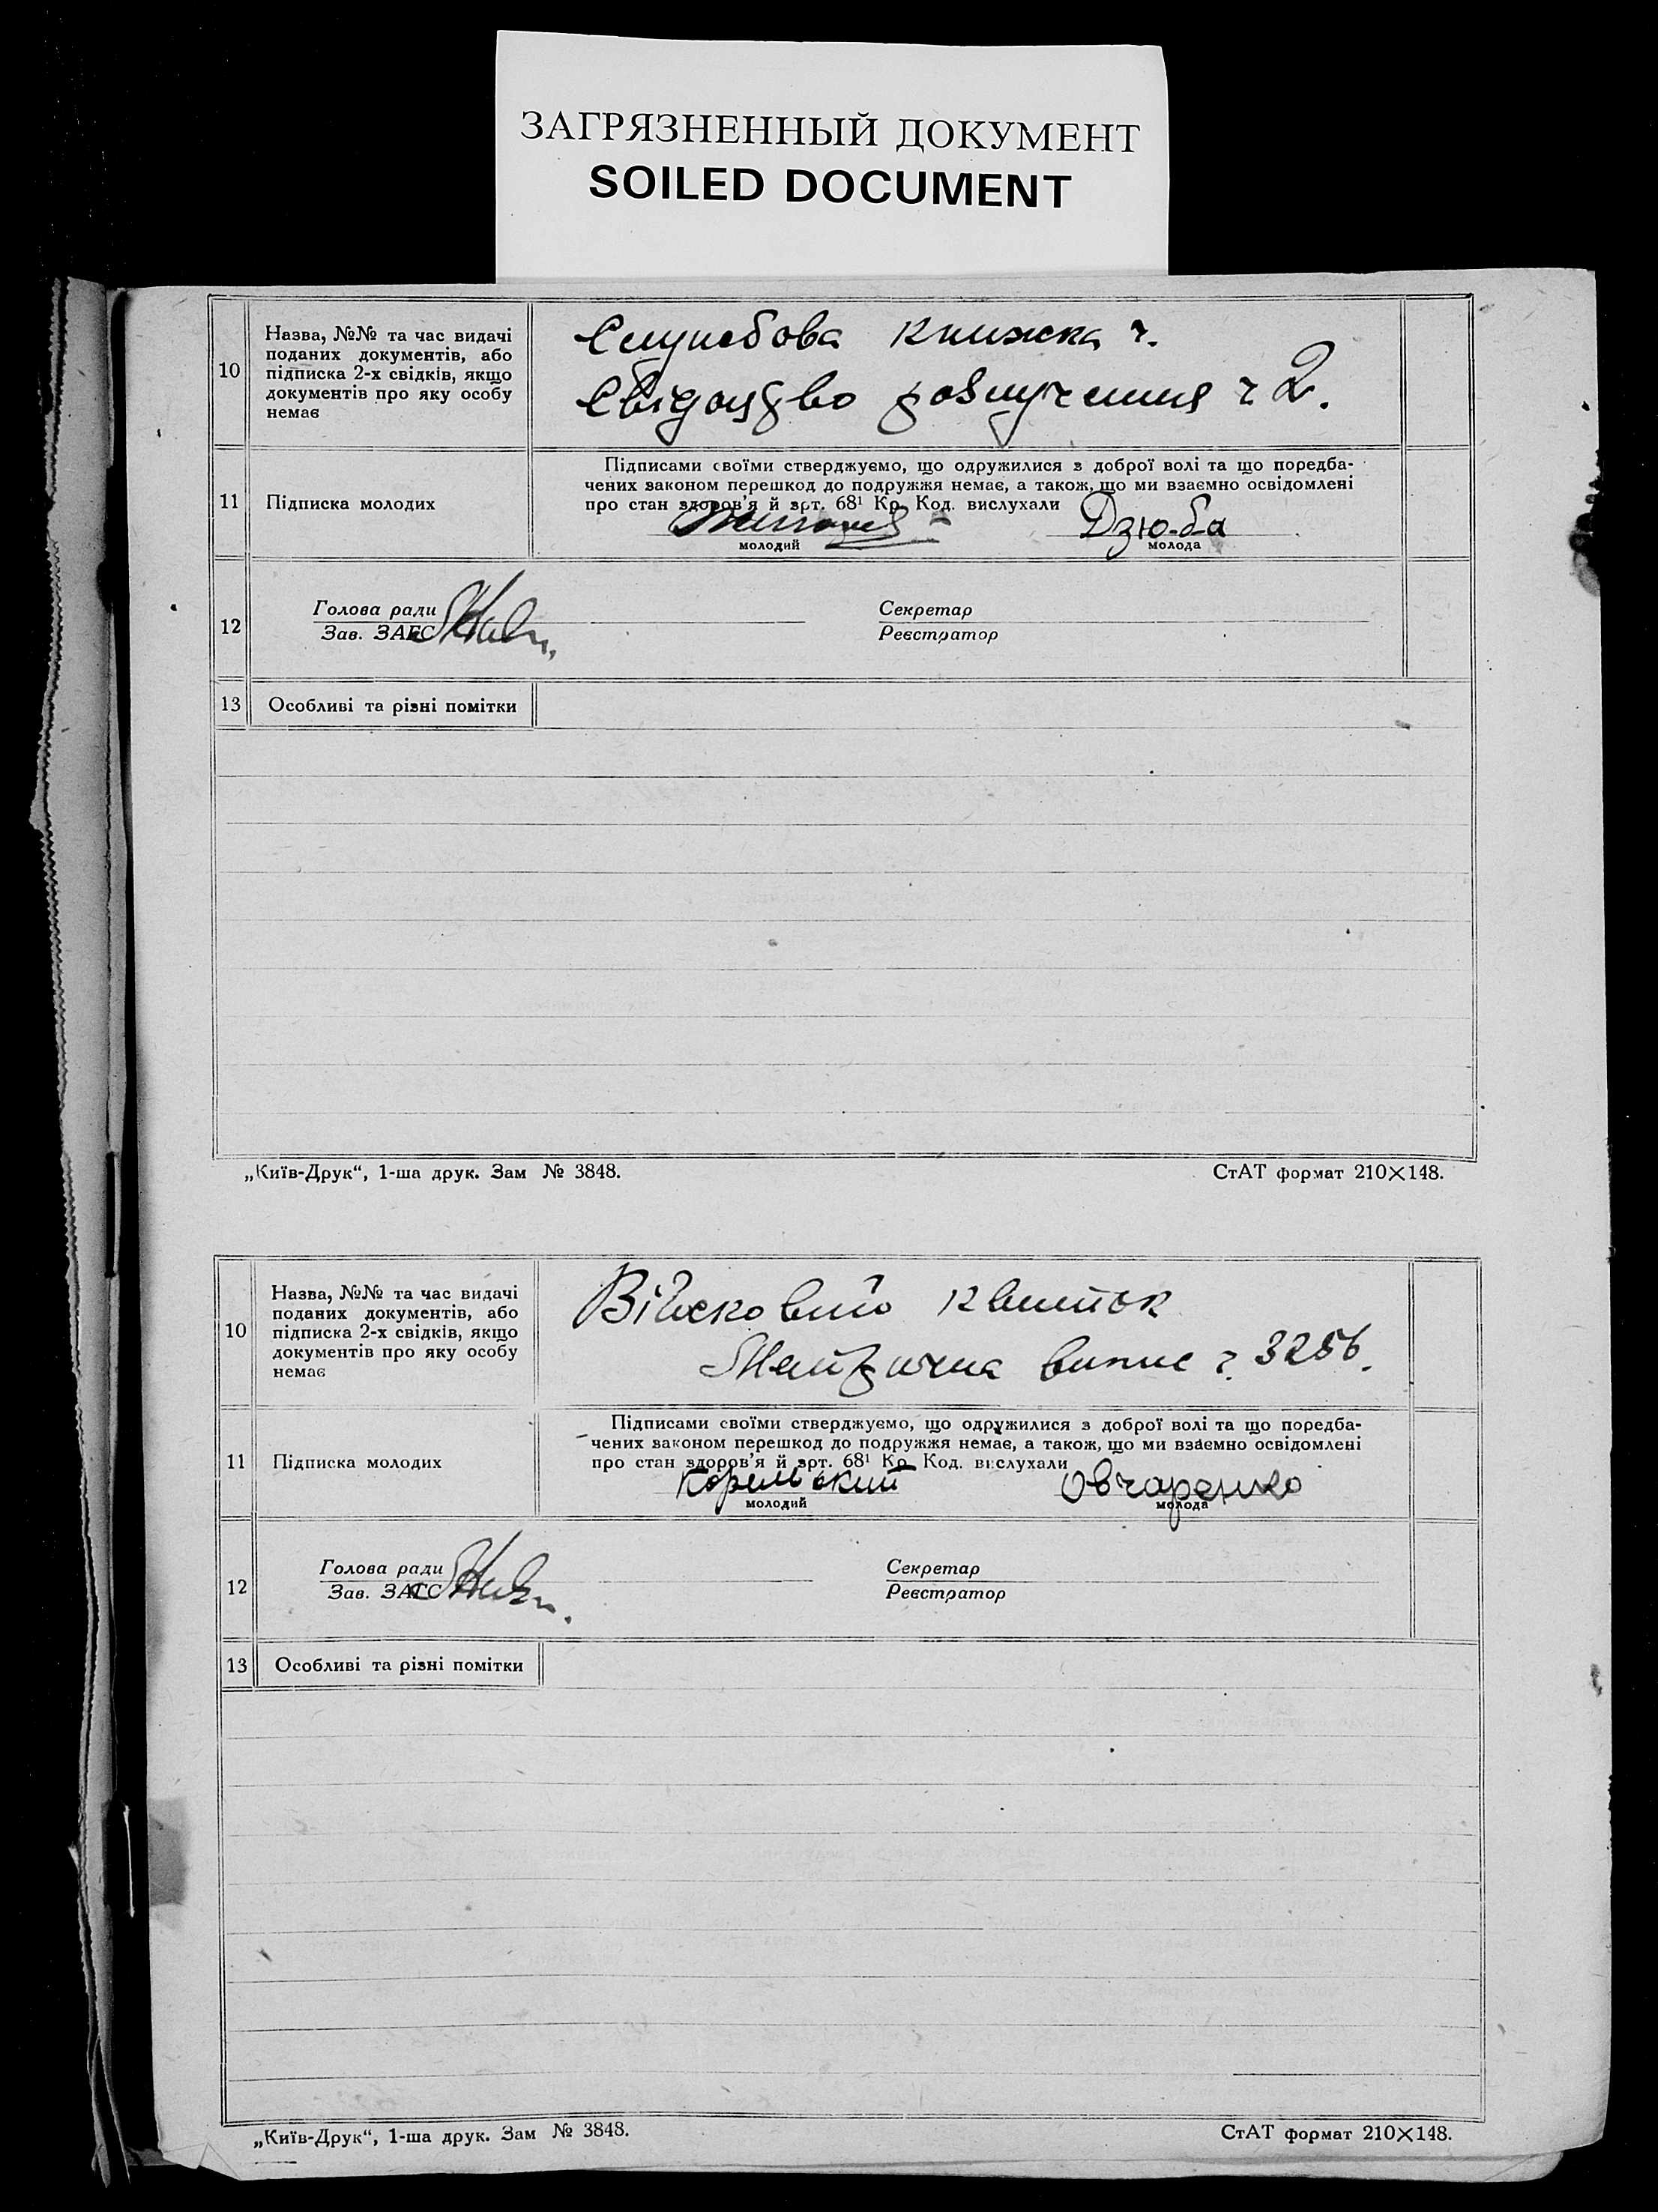 ЗАГРЯЗНЕННЫЙ ДОКУМЕНТ
SOILED DOCUMENT
10
Назва, №№ та час видачі
поданих документів, або
підписка 2-х свідків, якщо
документів про яку особу
немає
Службова книжка ч.
Свідоцтво розлучення ч 2.
11
Підписка молодих
Підписами своїми стверджуємо, що одружилися з доброї волі та що поредба-
чених законом перешкод до подружжя немає, а також, що ми взаємно освідомлені
про стан здоров'я й арт. 68¹ Кр. Код. вислухали
Дзюба
молодий
молода
12
Голова ради
Зав. ЗАГС
Секретар
Реєстратор
13
Особливі та різні помітки
„Київ-Друк“, 1-ша друк. Зам № 3848.
СтАТ формат 210×148.
10
Назва, №№ та час видачі
поданих документів, або
підписка 2-х свідків, якщо
документів про яку особу
немає
Військовий квиток
Метрична випис ч. 3256.
11
Підписка молодих
Підписами своїми стверджуємо, що одружилися з доброї волі та що поредба-
чених законом перешкод до подружжя немає, а також, що ми взаємно освідомлені
про стан здоров'я й арт. 68¹ Кр. Код. вислухали
Корольский Овчаренко
молодий
молода
12
Голова ради
Зав. ЗАГС
Секретар
Реєстратор
13
Особливі та різні помітки
„Київ-Друк“, 1-ша друк. Зам № 3848.
СтАТ формат 210×148.